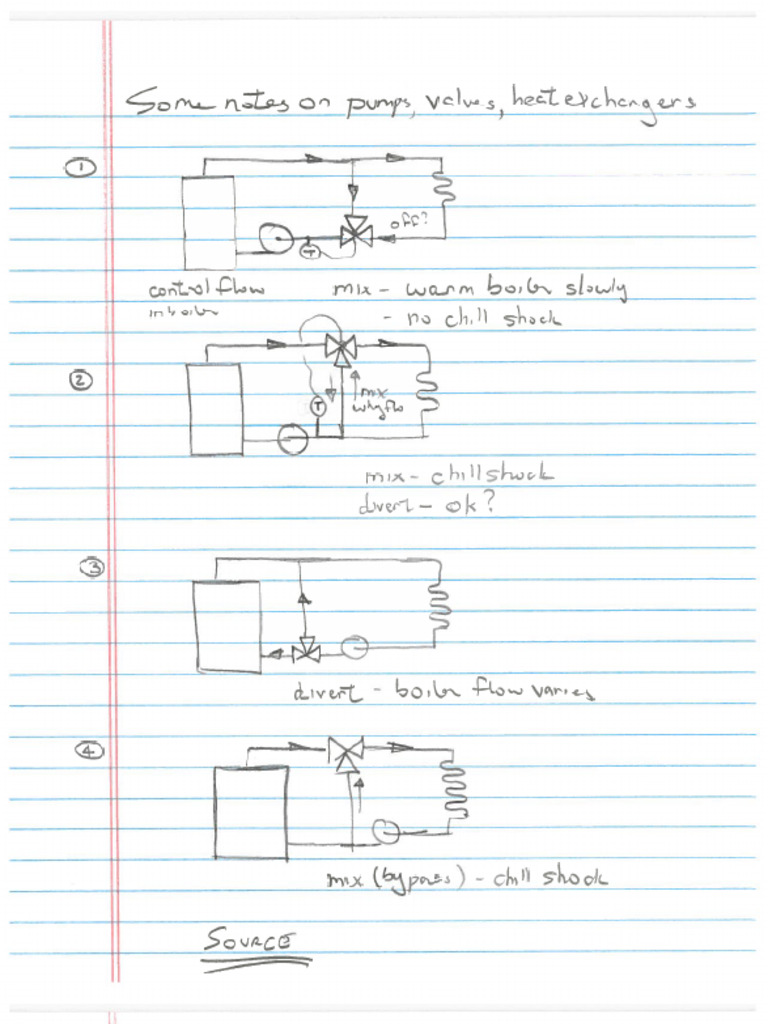 Some notes on pumps, valves, heat exchangers
1
off?
T
control flow
in boiler
mix - warm boiler slowly
- no chill shock
2
T
mix
mix - chill shock
divert - ok?
3
divert - boiler flow varies
4
mix (bypass) - chill shock
SOURCE